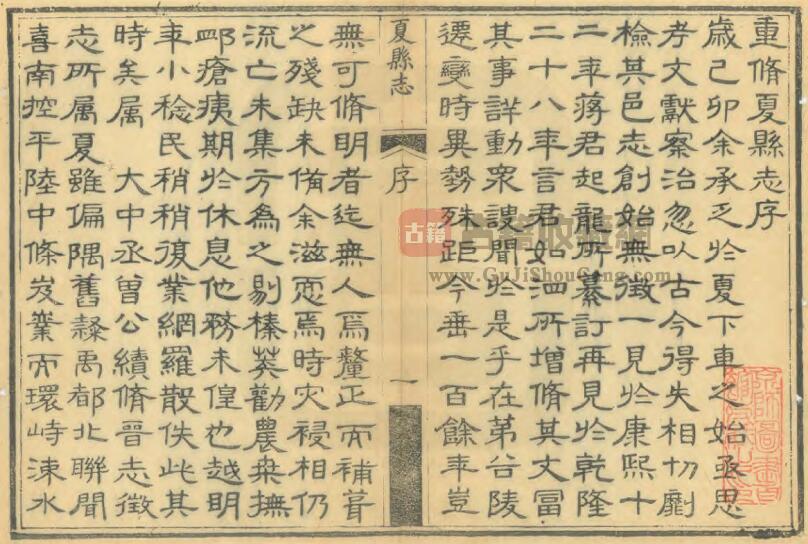 重脩夏縣志序
歲己卯余承乏於夏下車之始亟思
考文獻察治忽以古今得失相切劘
檢其邑志創始無徵一見於康熙十
二年蔣君起龍所纂訂再見於乾隆
二十八年言君如泗所增脩其文富
其事詳動衆謏聞於是乎在第谷陵
遷變時異勢殊距今垂一百餘年豈
夏縣志 序 一
無可脩明者迄無人焉釐正而補葺
之殘缺未備余滋恧焉時灾祲相仍
流亡未集方為之剔榛莽勸農桒撫
卹瘡痍期於休息他務未遑也越明
年小稔民稍稍復業網羅散佚此其
時矣属 大中丞曾公續脩晉志徵
志所属夏雖偏隅舊隸禹都北聯聞
喜南控平陸中條岌嶪而環峙涑水
古籍
古籍收藏網
www.GuJiShouCang.com